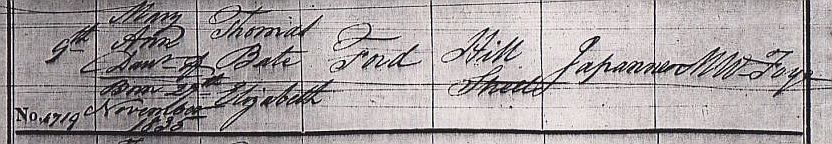 9th
Mary
Ann
Daur of
Born 27th
November
1833
Thomas
Bate
Elizabeth
Ford
Hill
Street
Japanner
M W Foye
No. 4719